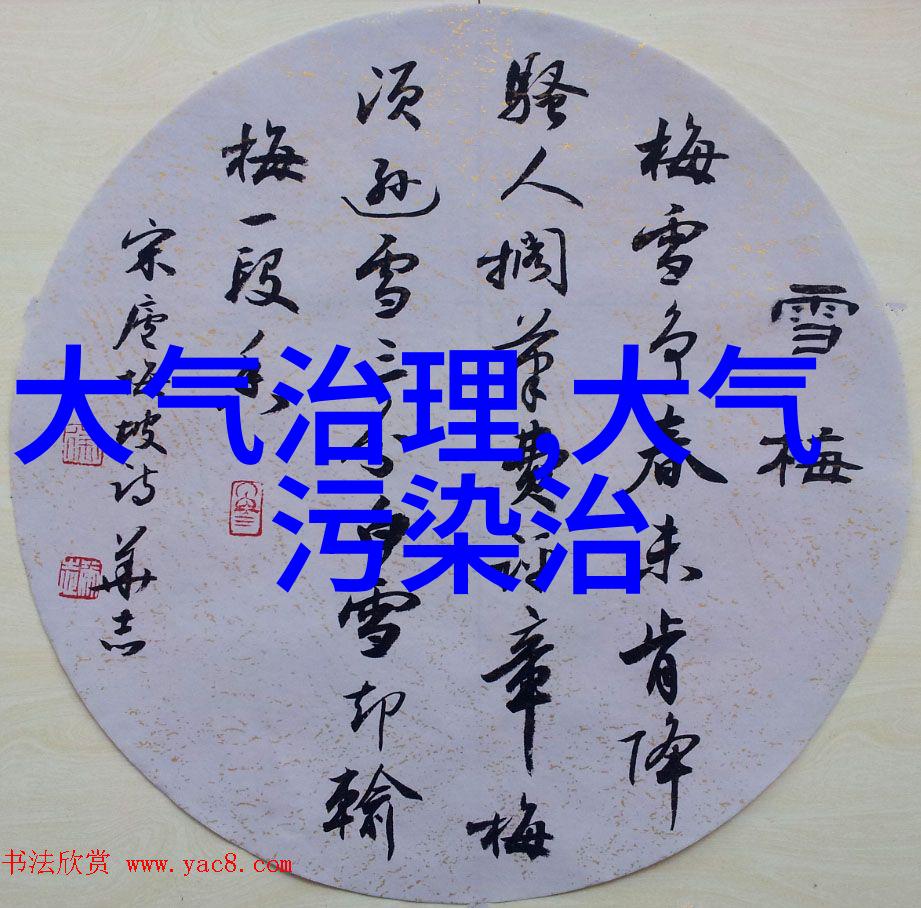 雪梅
梅雪争春未肯降
騷人擱筆費评章梅
须遜雪三分白雪却輸
梅一段香
宋盧梅坡诗華志
大气治理,大气
污染治
书法欣赏 www.yac8.com